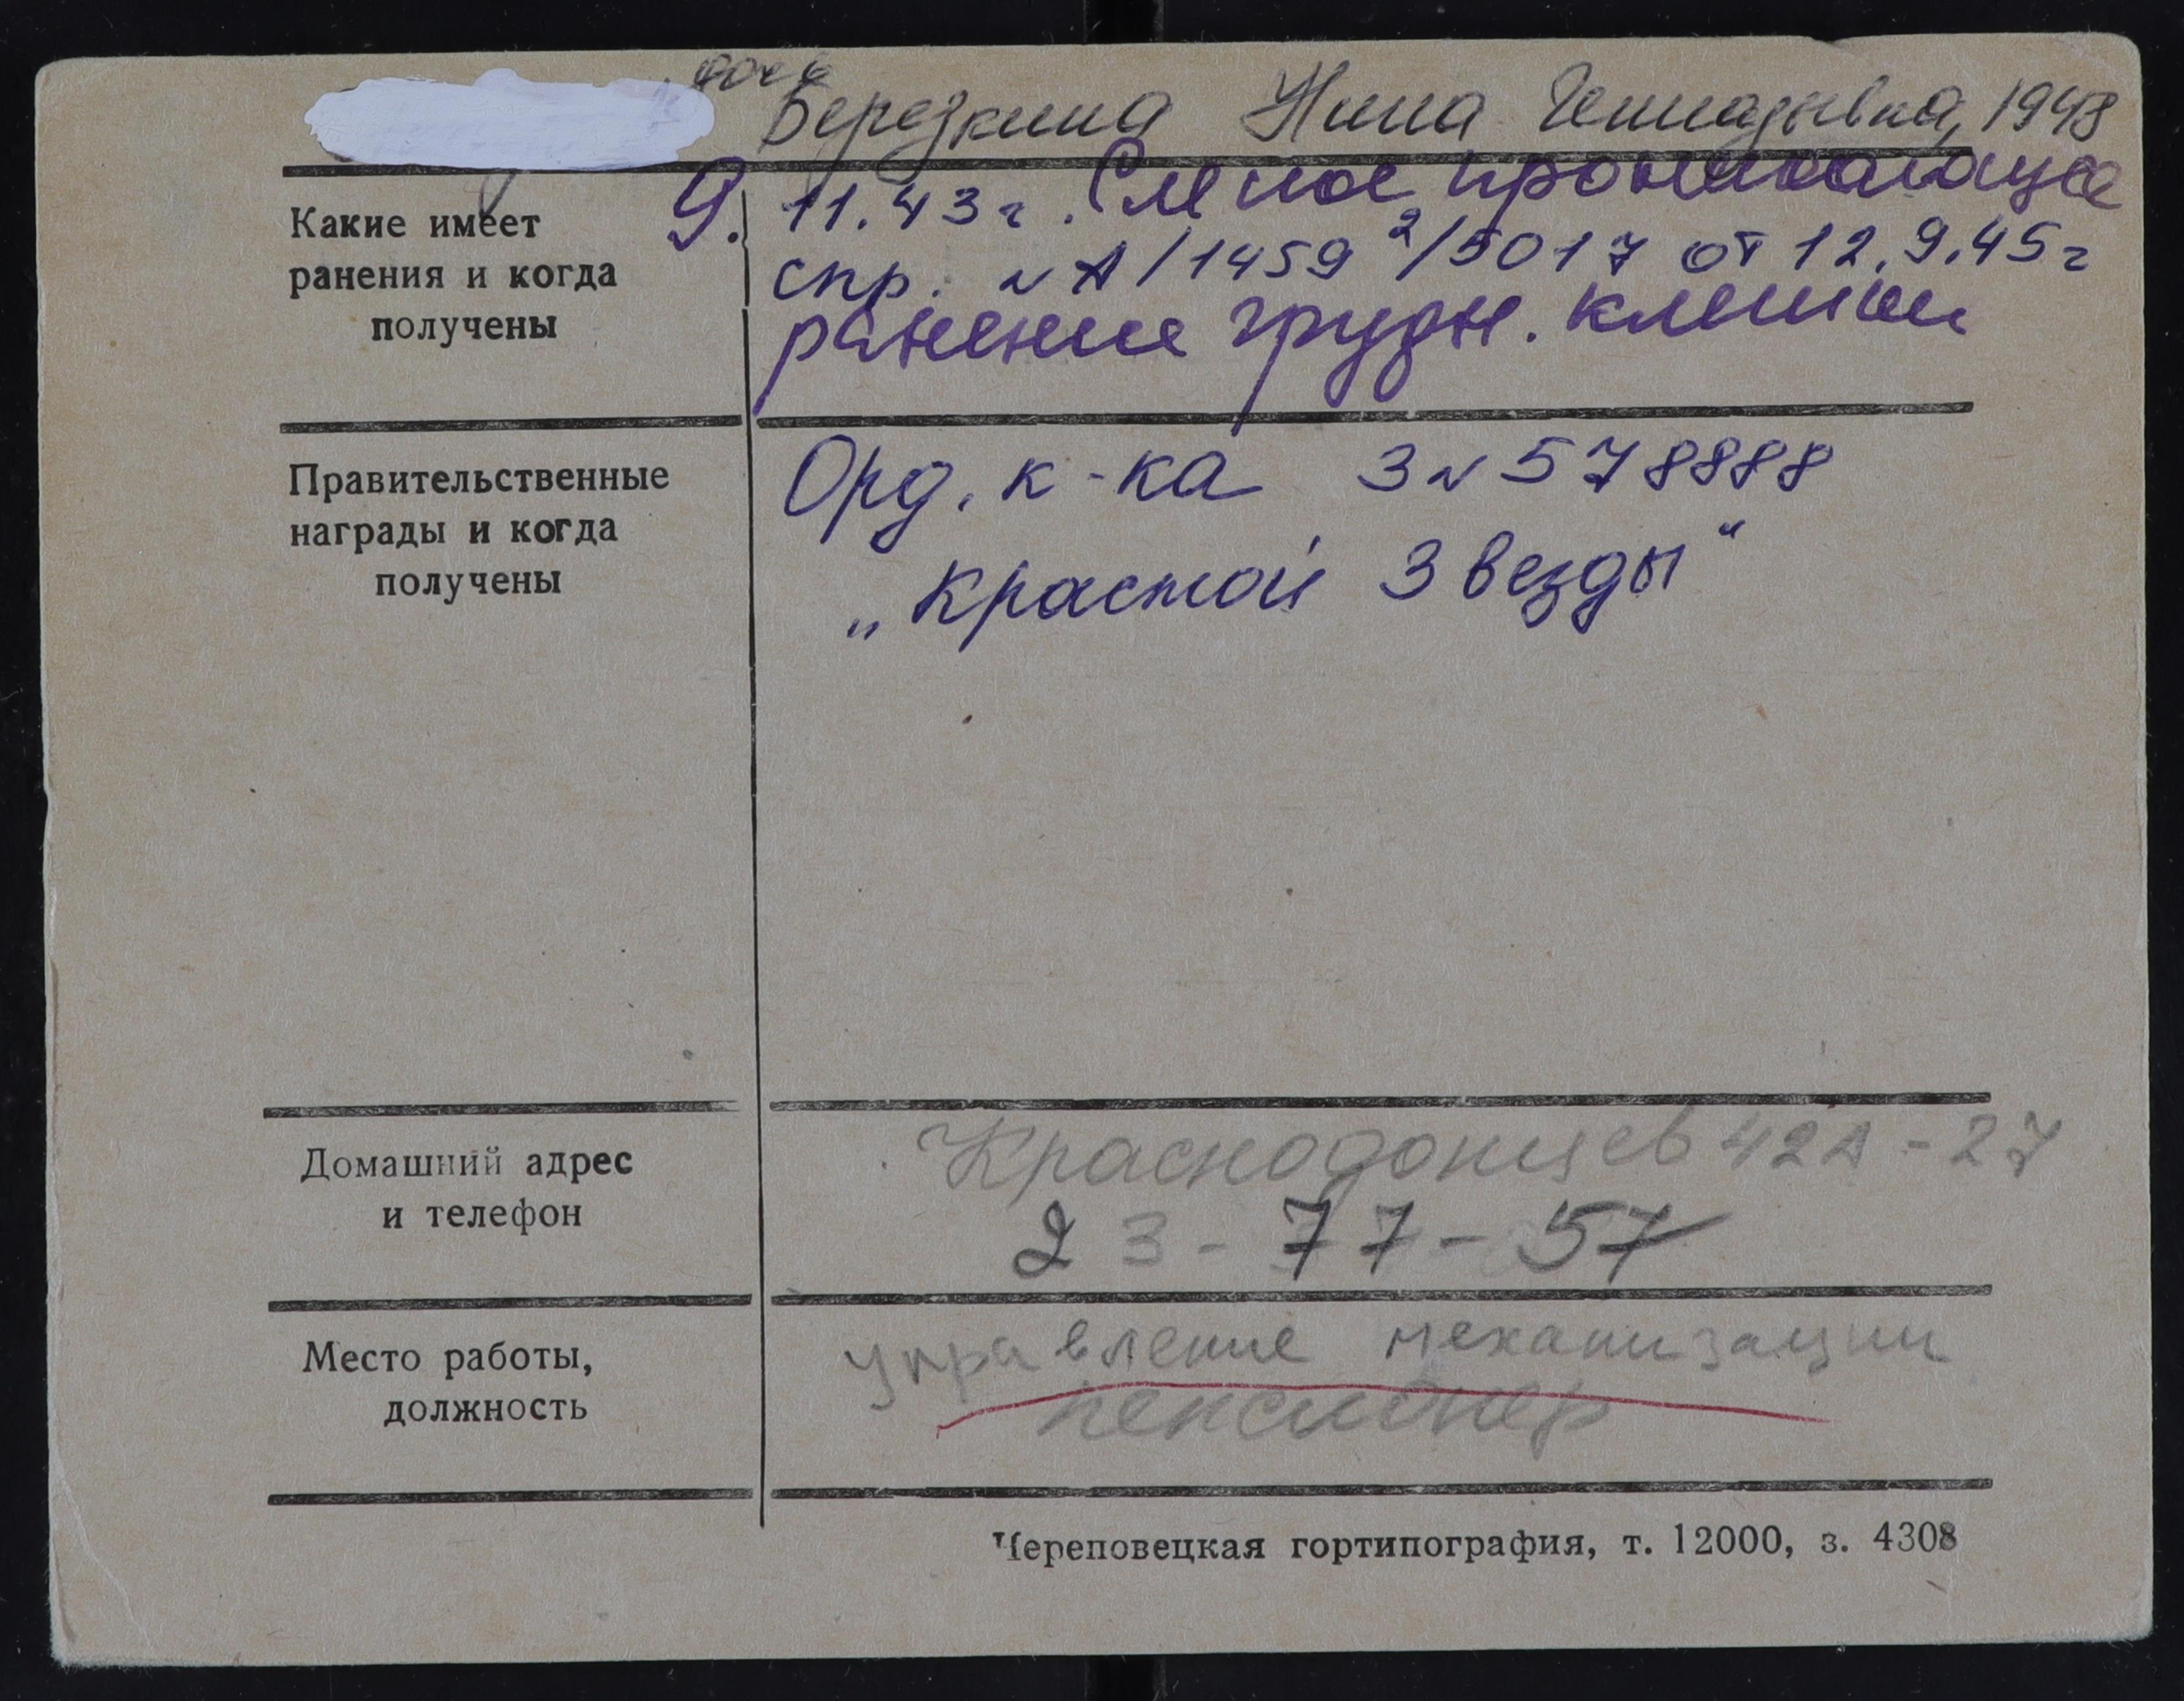 дочь
Березкина Нина Геннадьевна, 1948
Какие имеет
ранения и когда
получены
9. 11.43г. Слепое проникающее
спр. № А/1459²/5017 от 12.9.45г
ранение грудн. клетки
Правительственные
награды и когда
получены
Орд. к-ка З № 578888
„Красной Звезды“
Домашний адрес
и телефон
Краснодонцев 42А-27
23-77-57
Место работы,
должность
управление механизации
пенсионер
Череповецкая гортипография, т. 12000, з. 4308